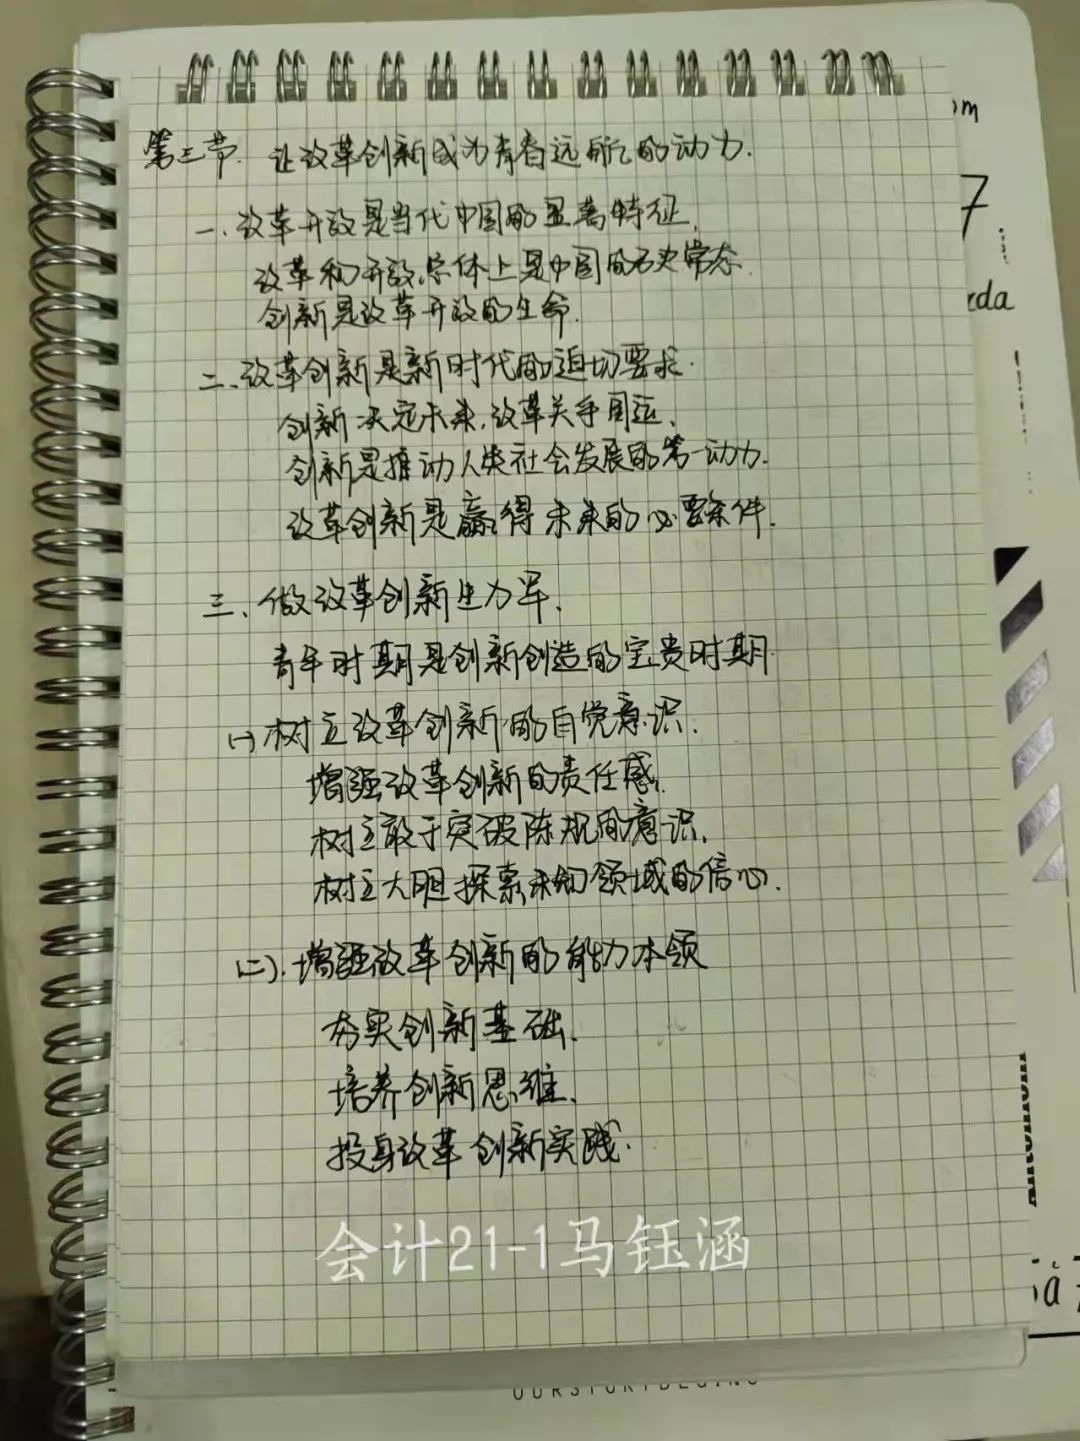 第三节. 让改革创新成为青春远航的动力.
一、改革开放是当代中国的显著特征.
改革和开放,总体上是中国的历史常态.
创新是改革开放的生命.
二、改革创新是新时代的迫切要求.
创新决定未来,改革关乎国运、
创新是推动人类社会发展的第一动力.
改革创新是赢得未来的必要条件.
三、做改革创新生力军.
青年时期是创新创造的宝贵时期
(一)树立改革创新的自觉意识.
增强改革创新的责任感.
树立敢于突破陈规的意识.
树立大胆探索未知领域的信心.
(二).增强改革创新的能力本领
夯实创新基础.
培养创新思维.
投身改革创新实践.
会计21-1马钰涵
om
7
zda
OUR STORY BEGINS